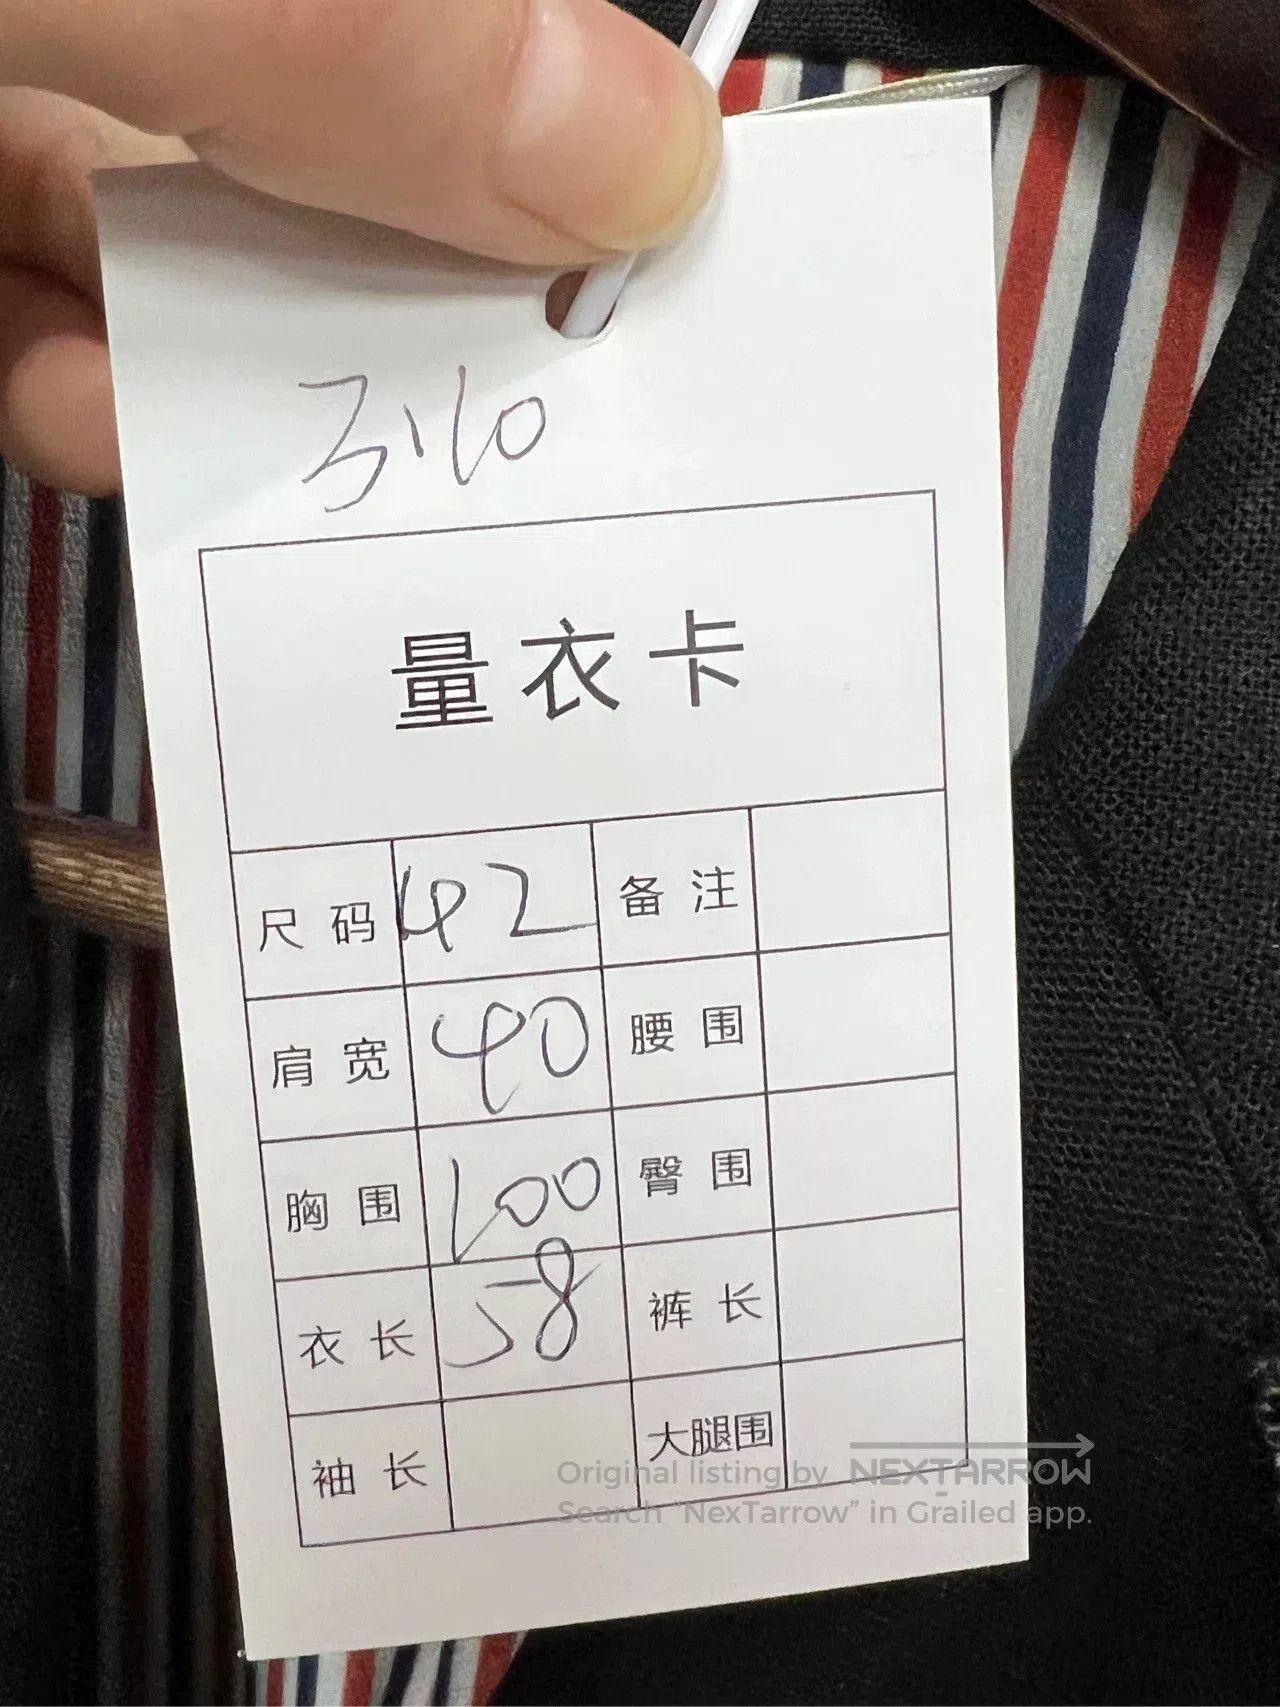 3.10
量衣卡
尺码 42 备注
肩宽 40 腰围
胸围 100 臀围
衣长 58 裤长
袖长 大腿围
Original listing by NEXTARROW
Search "NexTarrow" in Grailed app.